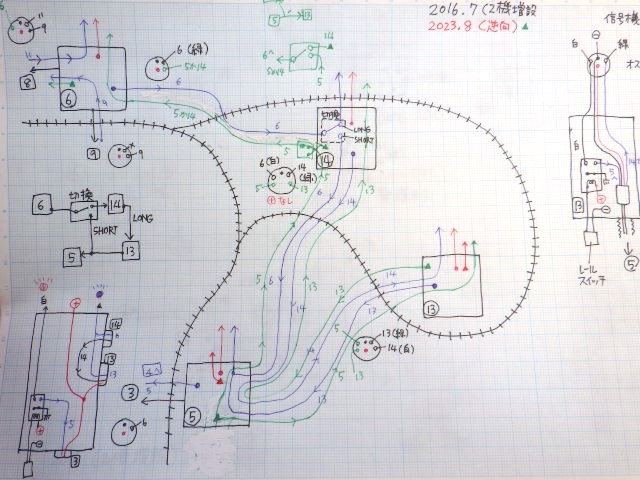 2016.7 (2機増設
2023.8 (逆向) ▲
信号機
11
9
13
14
5
6 (緑)
5か14
6へ
5か14
白
⊖
緑
オス
11
8
6
9
6
5か14
9
切換
LONG
SHORT
6
5
14
6(白)
14
(緑)
5
13
⊕なし
6
14
13
13
⊕
⊖
5へ
14
レール
スイッチ
5
6
切換
14
LONG
SHORT
5
13
5
6
14
13
14
13
13
13(緑)
14(白)
5
白
⊕
14
13
14
13
5
⊕
⊖
3
6
4へ
5
3
5